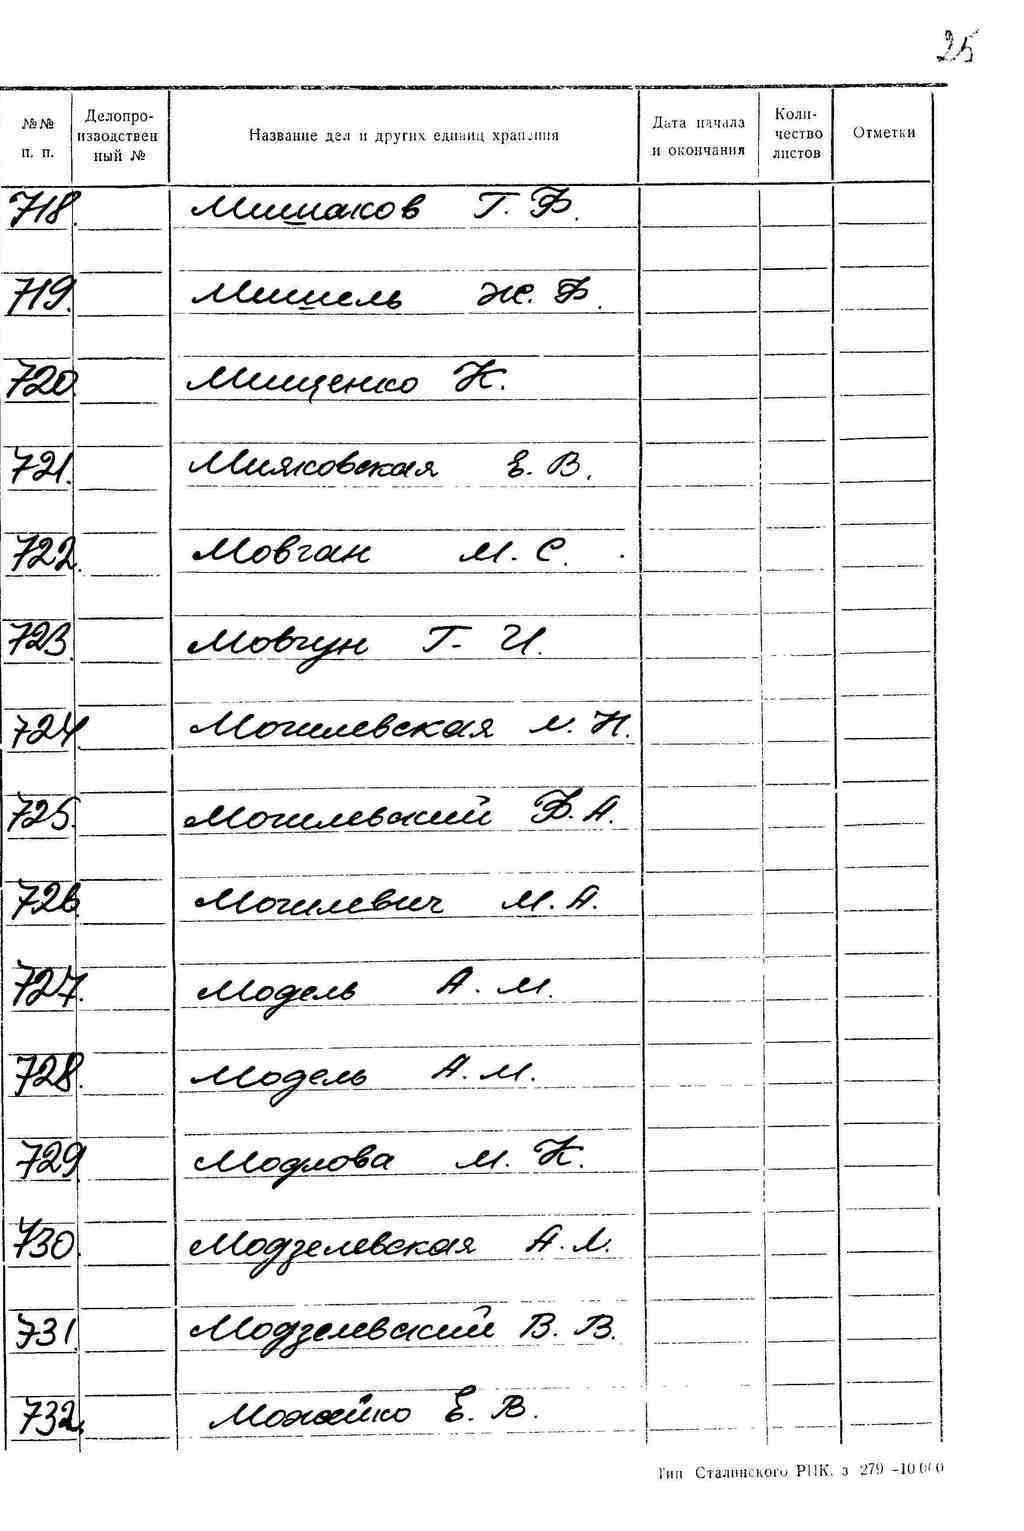 25
№№ п. п. Делопроизводствен ный № Название дел и других единиц хранения Дата начала и окончания Коли-чество листов Отметки
718. Мишаков Г. Ф.
719. Мишель Ж. Ф.
720. Мищенко К.
721. Мияковская Е. В.
722. Мовган М. С.
723. Мовчун Г. И.
724. Могилевская М. Н.
725. Могилевский Ф. А.
726. Могилевич М. А.
727. Модель А. М.
728. Модель А. М.
729. Модлова М. К.
730. Модзелевская А. Л.
731. Модзелевский В. В.
732. Можейко Е. В.
Тип Сталинского РПК. з 279 -10000